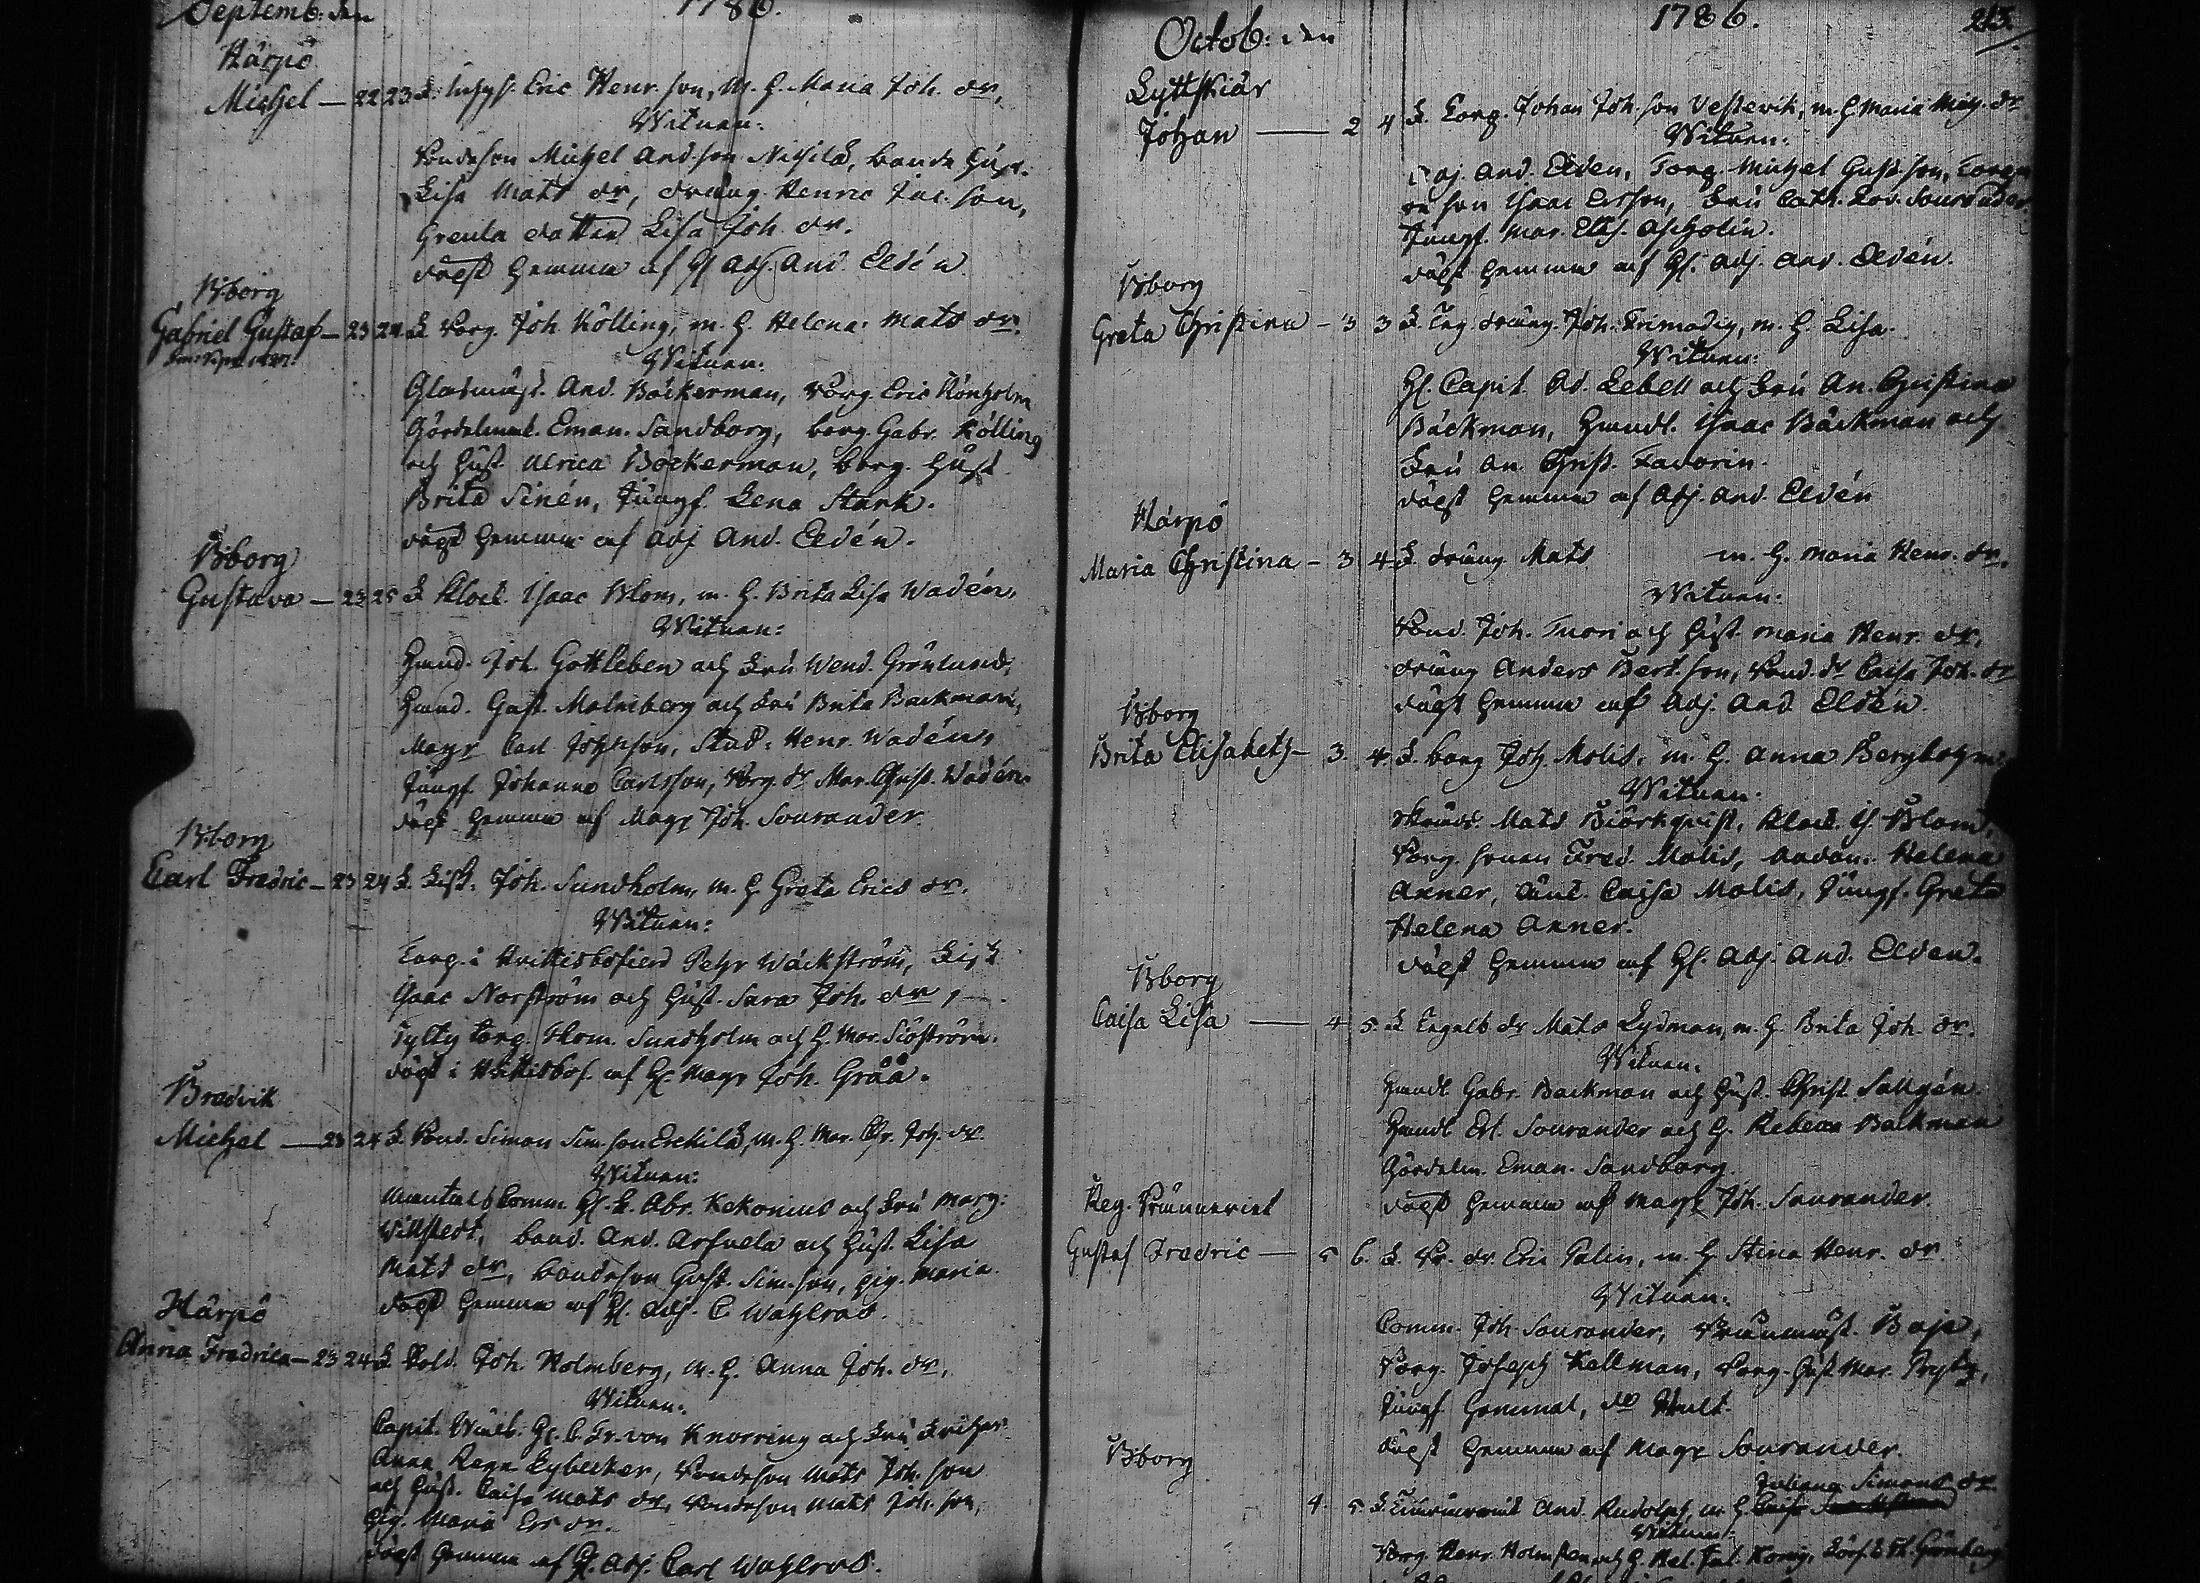 Septemb: den 1786.
Härpö
Michel — 22 23 Eric Henr. son, m. h. Maria Joh. dr,
Witnen:
Bondeson Michel And.son Nissilä, bonde hust.
Lisa Mats dr, dräng Henric Jac. son,
Grenla dotter Lisa Joh. dr.
döpt hemma af H Adj. And. Eldén
Bborg
Gabriel Gustaf — 23 24 B Borg. Joh Kölling, m. h. Helena Mats dr.
Witnen:
Glasmäst. And. Bäckerman, borg. Eric Rönholm
Gördelmak. Eman. Sandborg, borg. Gabr. Kölling
och hust. Ulrica Bockerman, borg. hust
Brita Sinén, Jungf. Lena Stark.
döpt hemma af Adj And. Eldén.
Bborg
Gustava — 23 25 B Klock. Isaac Blom, m. h. Brita Lisa Wadén.
Witnen:
Hand. Joh. Gottleben och Fru Wend. Grönlund,
Hand. Gust. Malmberg och Fru Brita Backman,
Magr Carl Johnson, Stud: Henr. Wadén,
Jungf. Johanna Carlsson, Borg. dr Mar. Christ. Wadén.
döpt hemma af Magr Joh. Sourander.
Bborg
Carl Fredric — 23 24 B. Fisk. Joh. Sundholm, m. h Greta Erics dr.
Witnen:
Torp. i Pehr Wäckström, Fisk
Isaac Norström och hust. Sara Joh. dr,
torp. Thom. Sundholm och h. Mar. Siöström.
döpt i af H. Magr Joh. Gråå.
Bredvik
Michel — 23 24 B. Bond. Simon Sim. son Eskilä, m. h Mar. Chr. Joh. dr.
Witnen:
Mantals Comm. H. Abr. Kekonius och Fru Marg:
Willstedt, bond. And. Arfvela och hust. Lisa
Mats dr, bondeson Gust. Sim. son, pig. Maria.
döpt hemma af H. Adj. C Wahlroos.
Härpö
Anna Fredrica — 23 24 B Sold. Joh. Holmberg, m. h. Anna Joh. dr,
Witnen:
Capit. Wälb. H. C. Fr. von Knorring och Fru
Anna Regn Lybecker, bondeson Mats Joh. son
och hust. Caisa Mats dr, bondeson Mats Joh. son,
pig. Maria Ers dr.
döpt hemma af H. Adj. Carl Wahlroos.
Octob: den 1786. 213.
Lyttskiär
Johan — 2 4 B. Torp. Johan Joh. son Vestervik, m. h Maria Mich. dr
Witnen:
Adj. And. Elden, Torp. Michel Gust. son,
son Isaac Ersson, Fru Cath. Lov. Sourander
Jungf. Mar. Elis. Ascholin.
döpt hemma af H. Adj. And. Eldén.
Bborg
Greta Christina — 3 3 B. dräng Joh. Frimodig, m. h. Lisa.
Witnen:
H. Capit. Ad. Lebell och Fru An. Christina
Bäckman, Handl. Isaac Bäckman och
Fru An. Christ. Favorin.
döpt hemma af Adj. And. Eldén
Härpö
Maria Christina — 3 4 B. dräng Mats m. h. Maria Henr. dr.
Witnen:
Bond. Joh. Tuori och hust. Maria Henr. dr,
dräng Anders Bert. son, Bond. dr Caisa Joh. dr
döpt hemma af Adj. And Eldén.
Bborg
Brita Elisabeth — 3. 4. B. borg Joh Molis, m. h. Anna Bergbohm.
Witnen.
Skrädd. Mats Biörkquist, Klock. Is. Blom,
Borg. sonen Fred. Molis, Helena
Anner, Caisa Molis, Jungf. Greta
Helena Anner.
döpt hemma af H. Adj. And. Elden.
Bborg
Caisa Lisa — 4 5. B Mats Lydman, m. h. Brita Joh dr.
Witnen.
Handl Gabr. Backman och hust. Christ. Sallgén
Handl Er. Sourander och h. Rebecca Backman
Gördelm. Eman. Sandborg.
döpt hemma af Magr Joh. Sourander.
Reg. Bränneriet
Gustaf Fredric — 5 6. B. Br. dr. Eric Palin, m. h Stina Henr. dr.
Witnen.
Comm. Joh. Sourander, Brännmäst. Boje,
Borg. Joseph Kellman, borg. hust Mar. Prytz,
Jungf Gommal, do Hult.
döpt hemma af Magr Sourander.
Bborg
Juliana Simons dr
4 5. B. And. Rudolph, m. h
Witnen:
Borg. Henr. Holmsten och h. Hel. Jul. König,